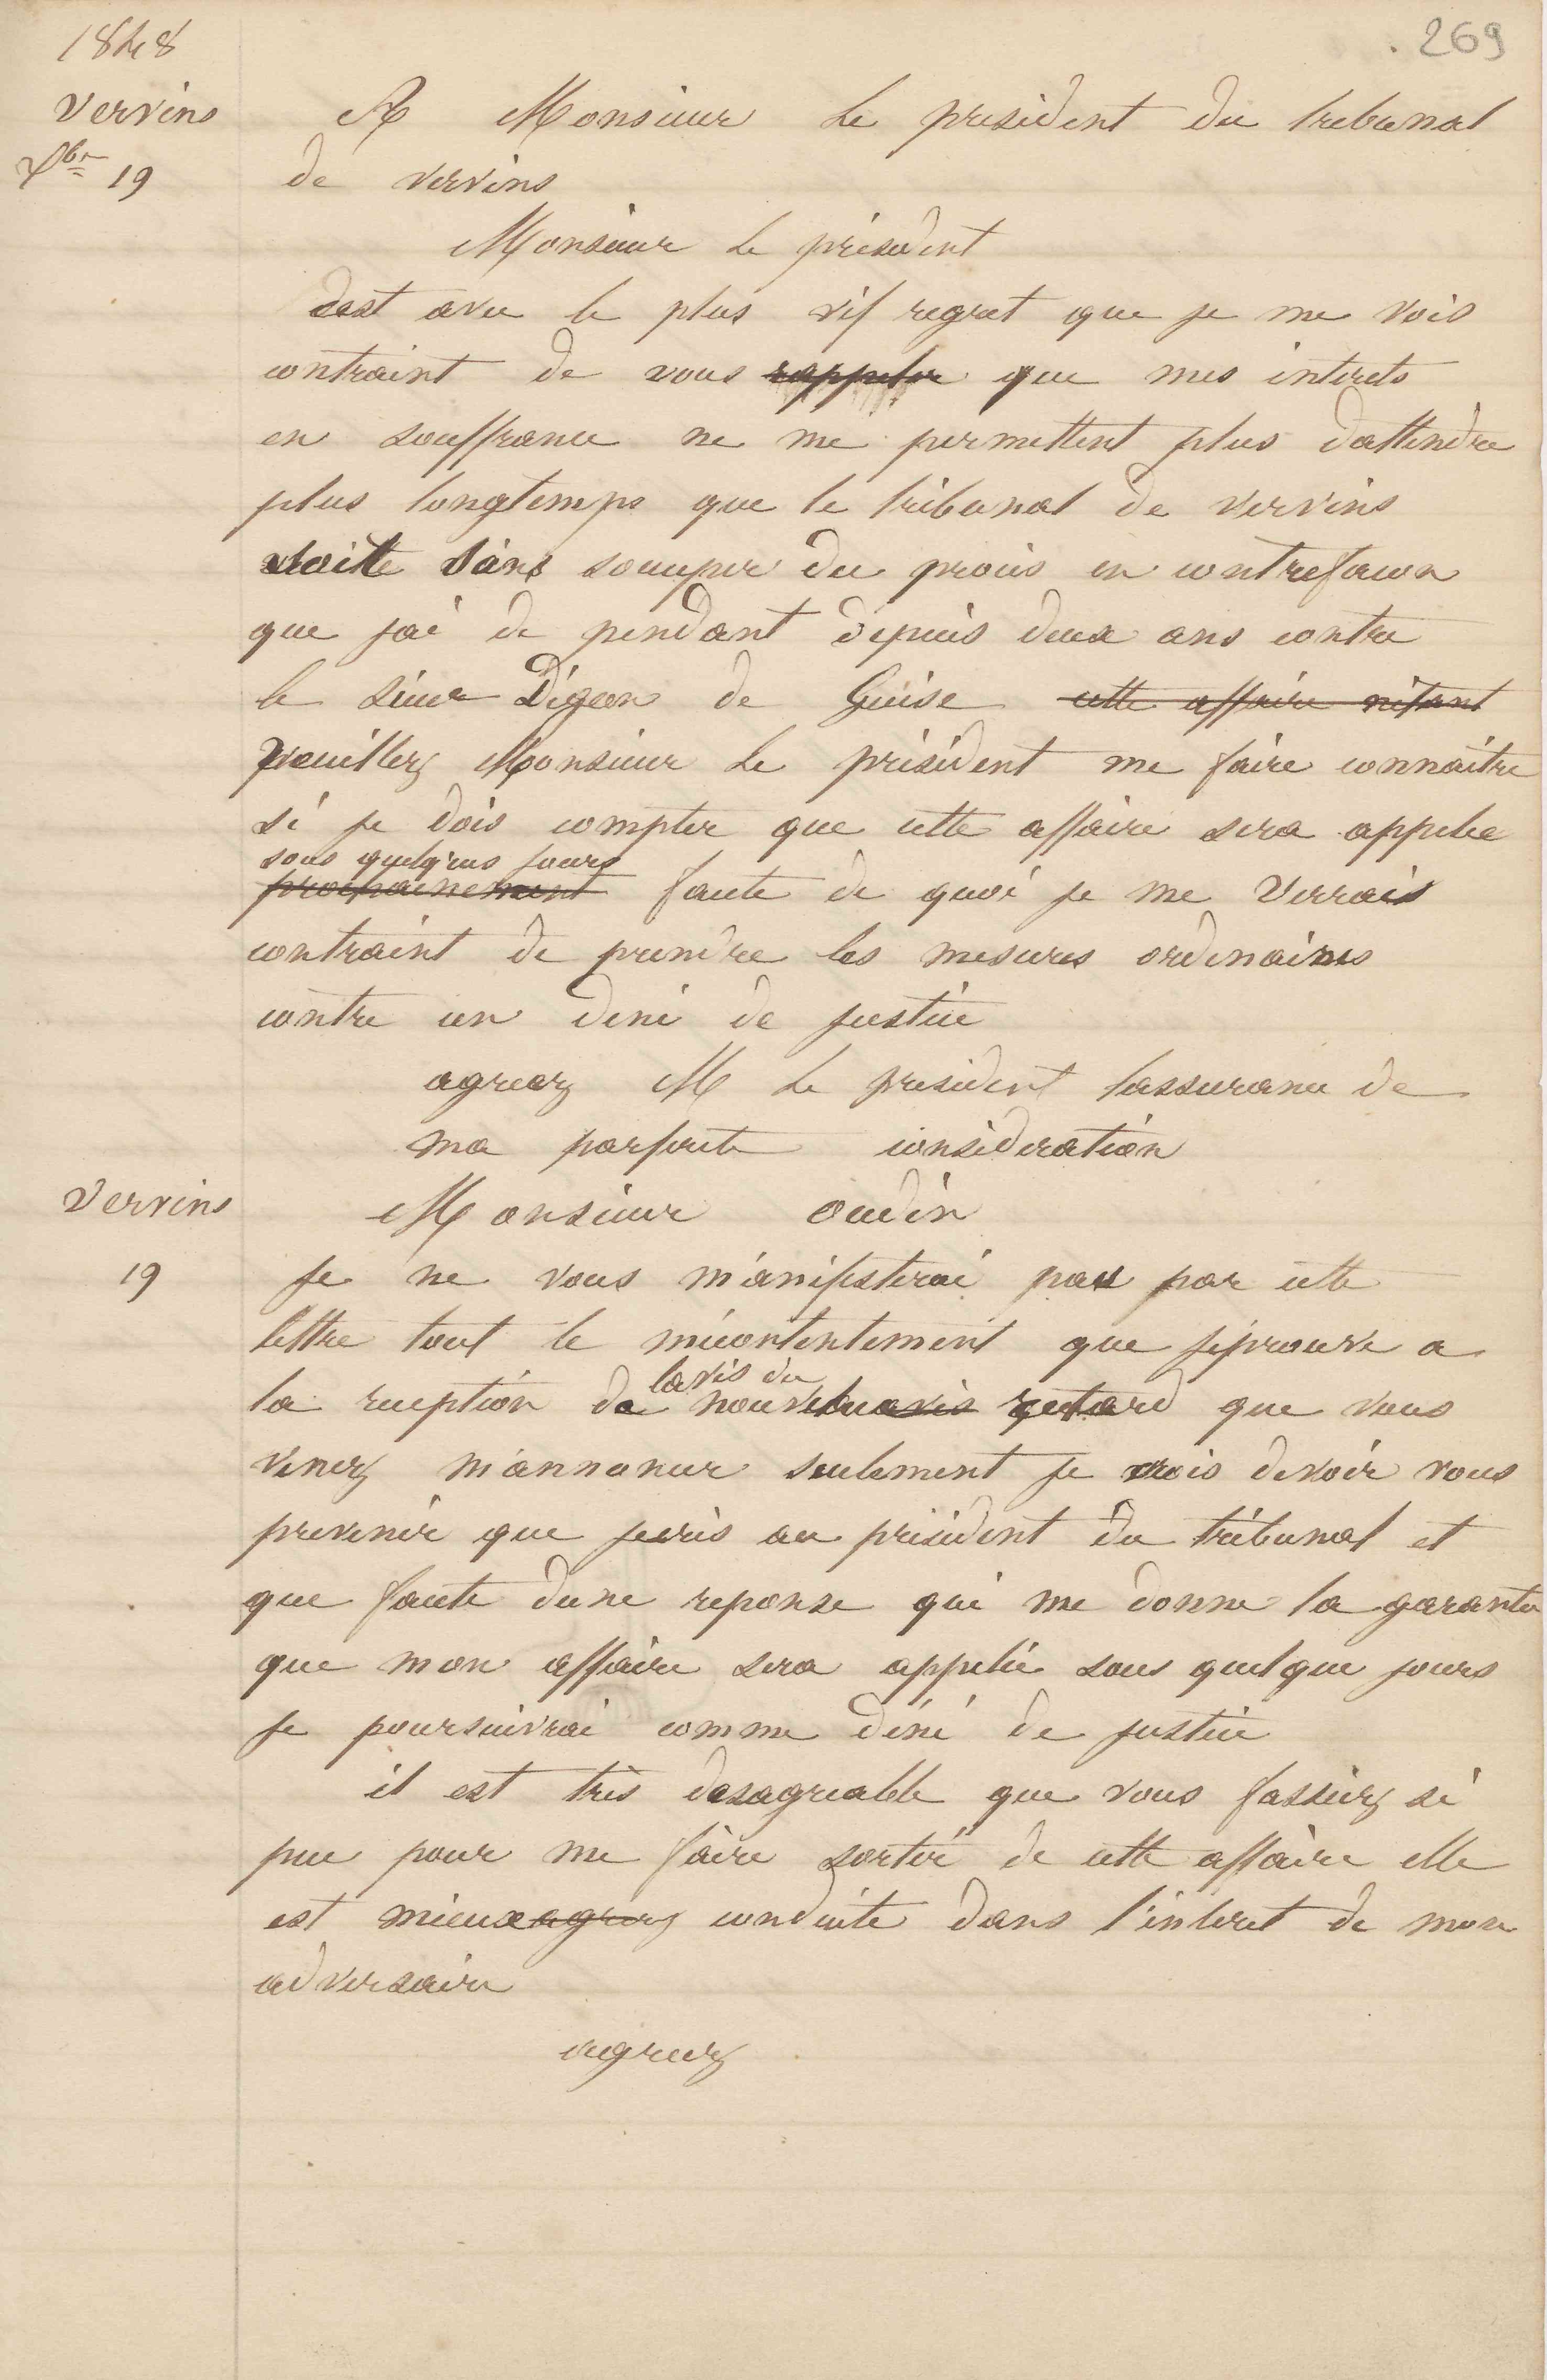 269
1848
Vervins
Xbre 19
A Monsieur le president du tribunal
de vervins
Monsieur le président
cest avec le plus vif regret que je me vois
contraint de vous rappeler que mes interets
en souffrance ne me permettent plus dattendre
plus longtemps que le tribunal de vervins
sans soccuper du procès en contrefacon
que jai de pendant dépuis deux ans contre
le sieur Dégeon de Guise cette affaire nétant
veuillez Monsieur le président me faire connaitre
si je dois compter que cette affaire sera appelee
sous quelques jours
prochainement faute de quoi je me verrais
contraint de prendre les mesures ordinaires
contre un deni de justice
agreez M le president lassurance de
ma parfaite considération
Vervins
19
Monsieur oudin
je ne vous manifesterai pas par cette
lettre tout le mécontentement que jéprouve a
lavis du
la reception de nouveau avis retard que vous
venez m'annoncer seulement je crois devoir vous
prevenir que jecris au président du tribunal et
que faute dune reponse qui me donne la garantie
que mon affaire sera appelée sous quelque jours
je poursuivrai comme déni de justice
il est très desagreable que vous fassiez si
peu pour me faire sortir de cette affaire elle
est mieux agreez conduite dans l'interet de mon
adversaire
agreez